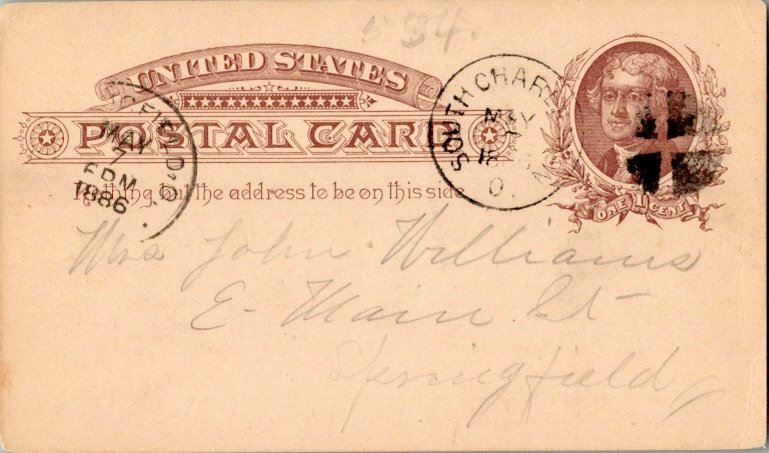 34.
UNITED STATES
POSTAL CARD
Nothing but the address to be on this side
FIELD O.
MAY
7
6 PM
1886
SOUTH CHAR
MAY
7
O.
ONE 1 CENT
Mrs John Williams
E. Main St
Springfield